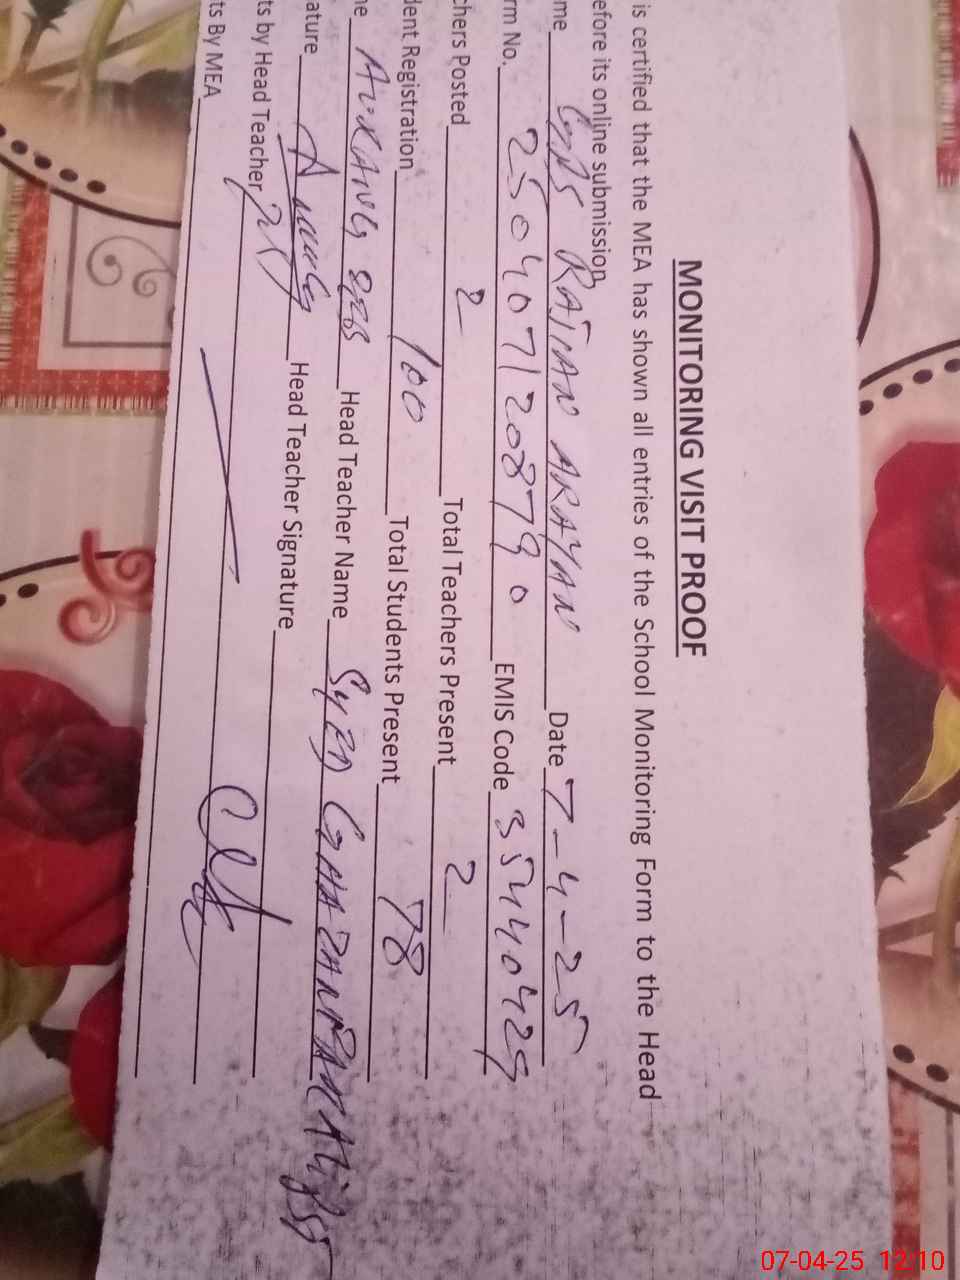 MONITORING VISIT PROOF
is certified that the MEA has shown all entries of the School Monitoring Form to the Head
efore its online submission
me GPS RAJIAN ARAYAN Date 7-4-25
rm No. 2504071208790 EMIS Code 35440429
chers Posted 2 Total Teachers Present 2
dent Registration 100 Total Students Present 78
ne Head Teacher Name SYED
ature Head Teacher Signature
ts by Head Teacher
ts By MEA
07-04-25 12:10